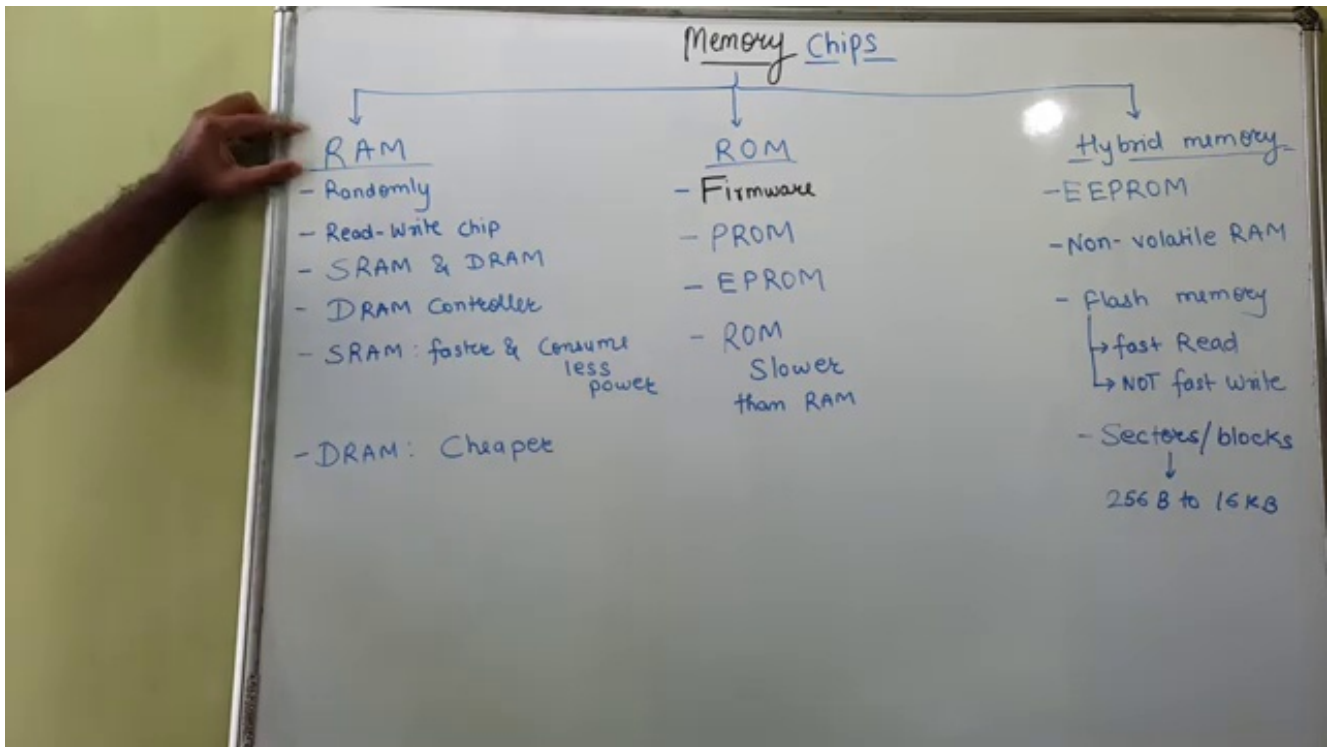 Memory Chips
RAM
- Randomly
- Read-Write chip
- SRAM & DRAM
- DRAM Controller
- SRAM: faster & Consume
less
power
- DRAM: Cheaper
ROM
- Firmware
- PROM
- EPROM
- ROM
Slower
than RAM
Hybrid memory
- EEPROM
- Non-volatile RAM
- flash memory
→ fast Read
→ NOT fast write
- Sectors/blocks
↓
256 B to 16 KB